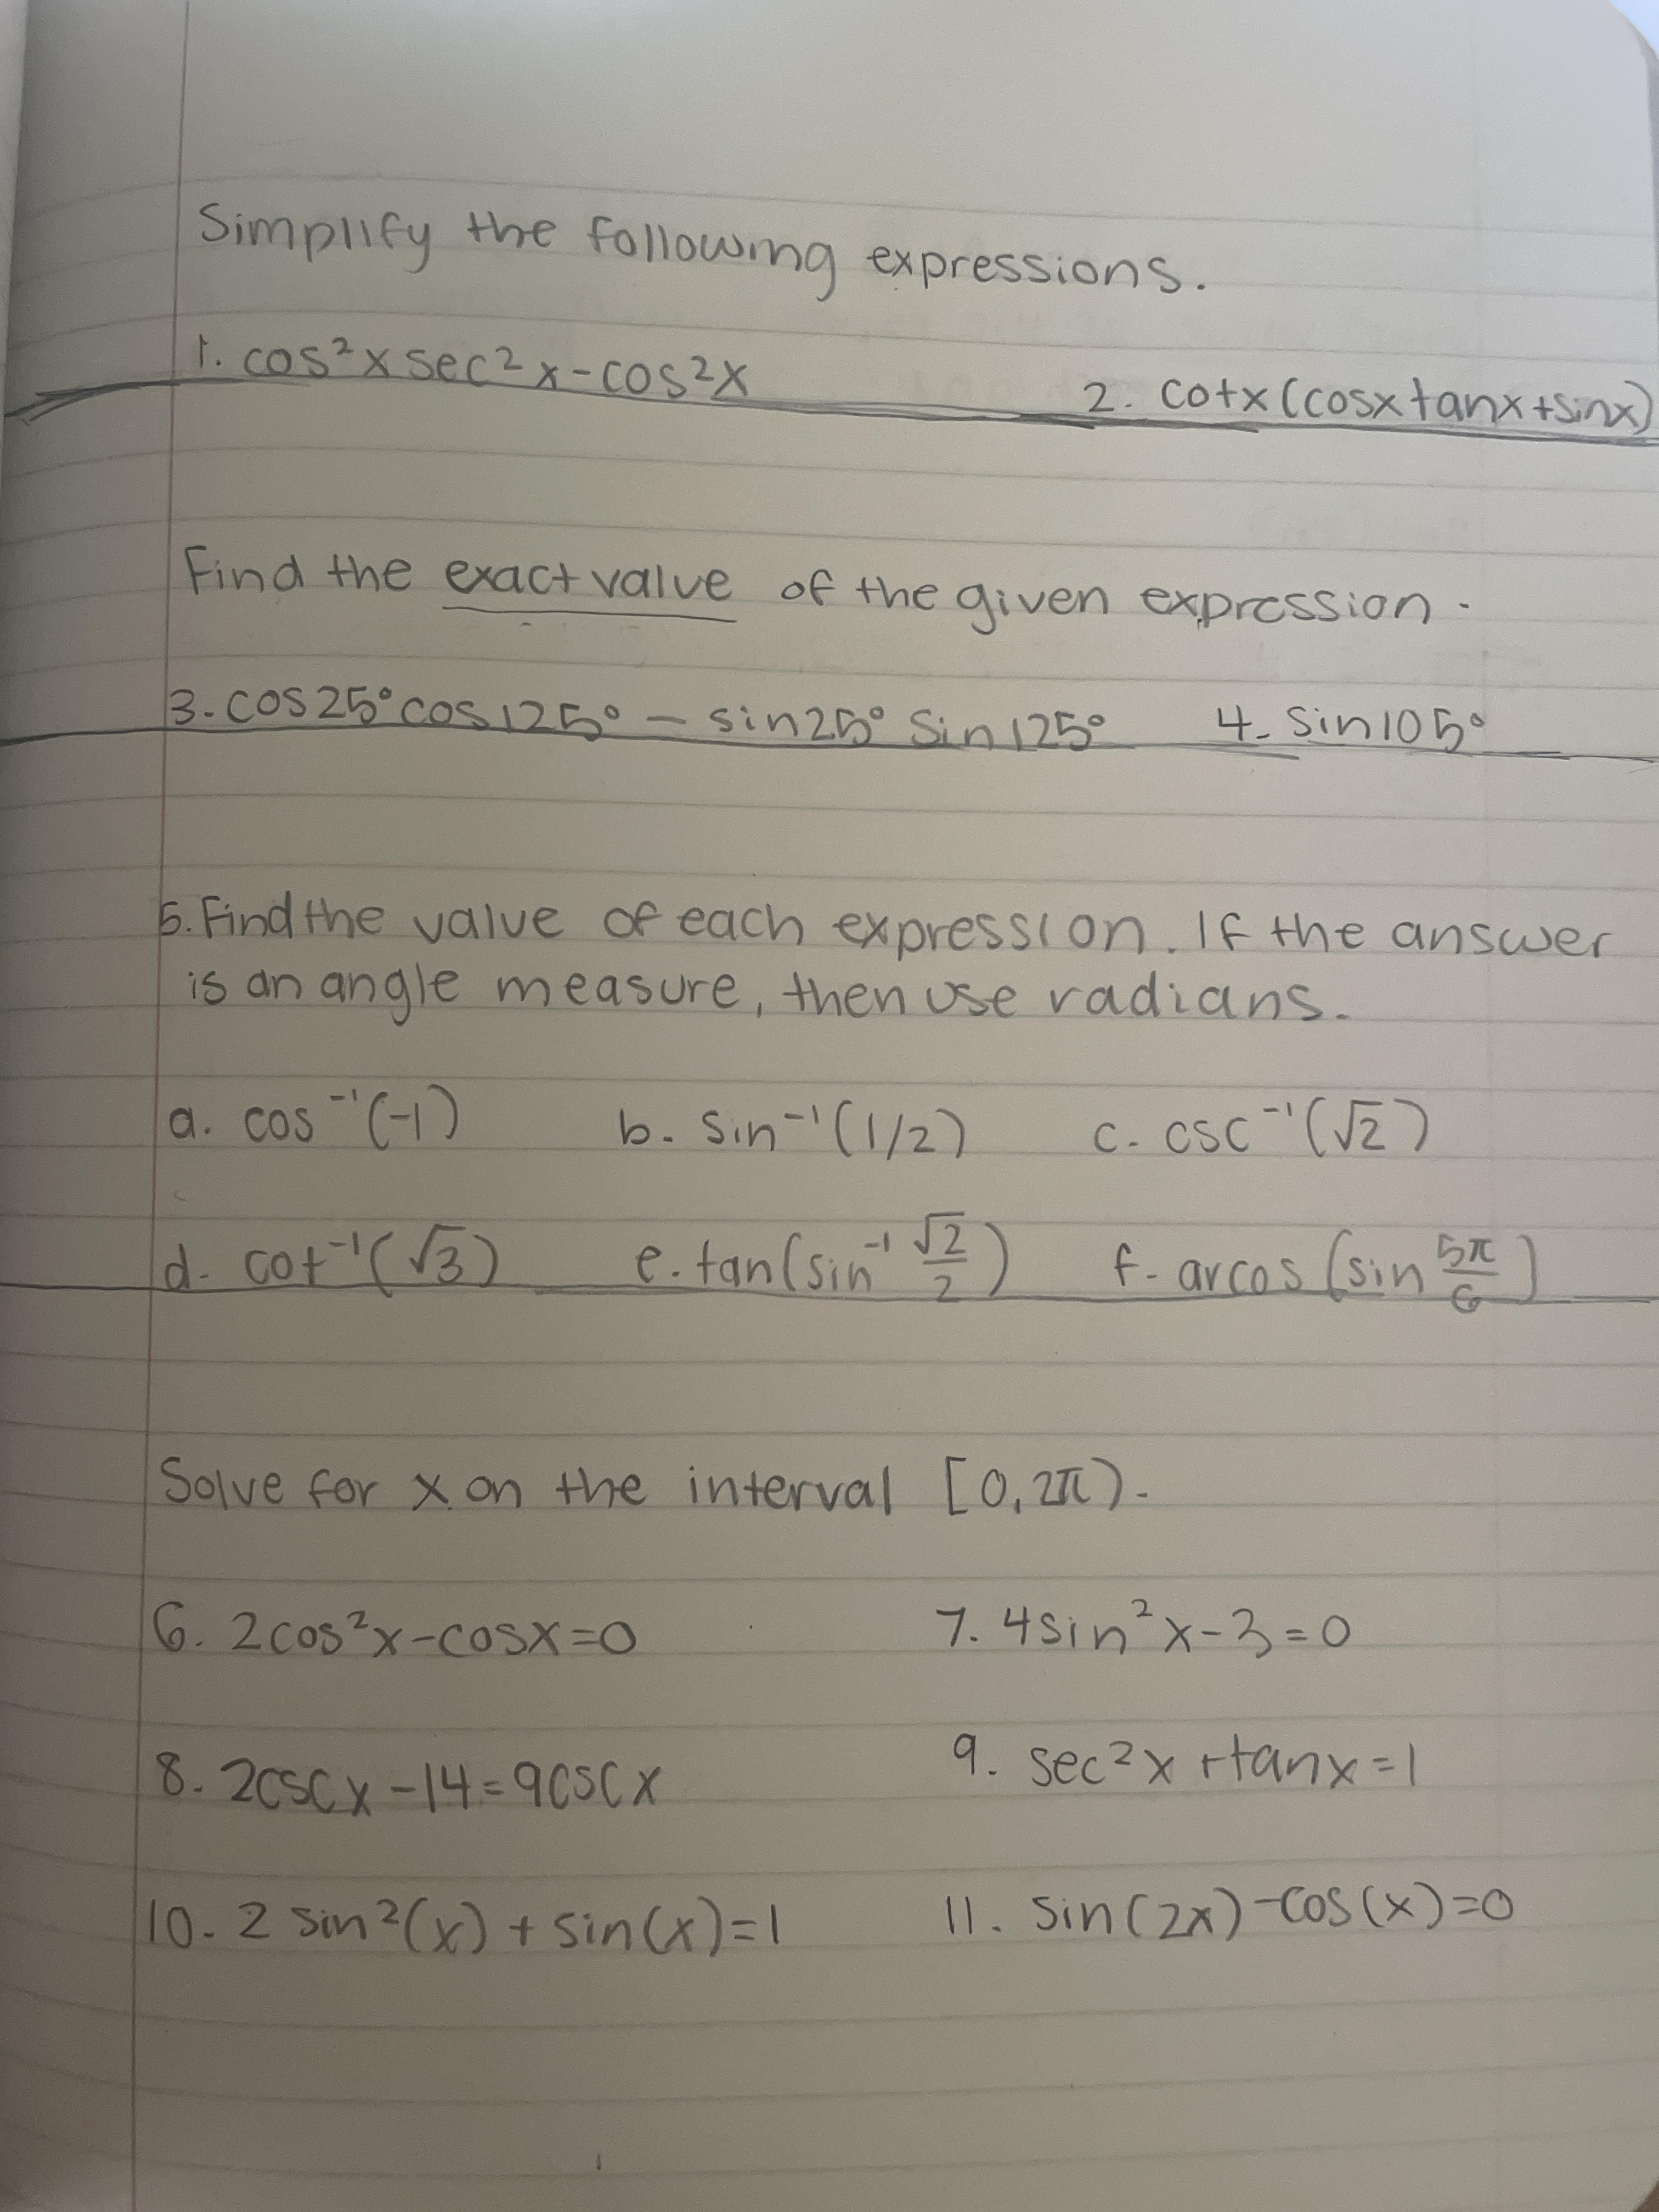 Simplify the following expressions.
1. cos²x sec²x-cos²x 2. cotx(cosxtanx+sinx)
Find the exact value of the given expression.
3. cos25°cos125° - sin25° sin125° 4. sin105°
5. Find the value of each expression. If the answer
is an angle measure, then use radians.
a. cos⁻¹(-1) b. sin⁻¹(1/2) c. csc⁻¹(√2)
d. cot⁻¹(√3) e. tan(sin⁻¹ √2/2) f. arcos(sin 5π/6)
Solve for x on the interval [0,2π).
6. 2cos²x-cosx=0 7. 4sin²x-3=0
8. 2cscx-14=9cscx 9. sec²x+tanx=1
10. 2 sin²(x) + sin(x)=1 11. sin(2x)-cos(x)=0